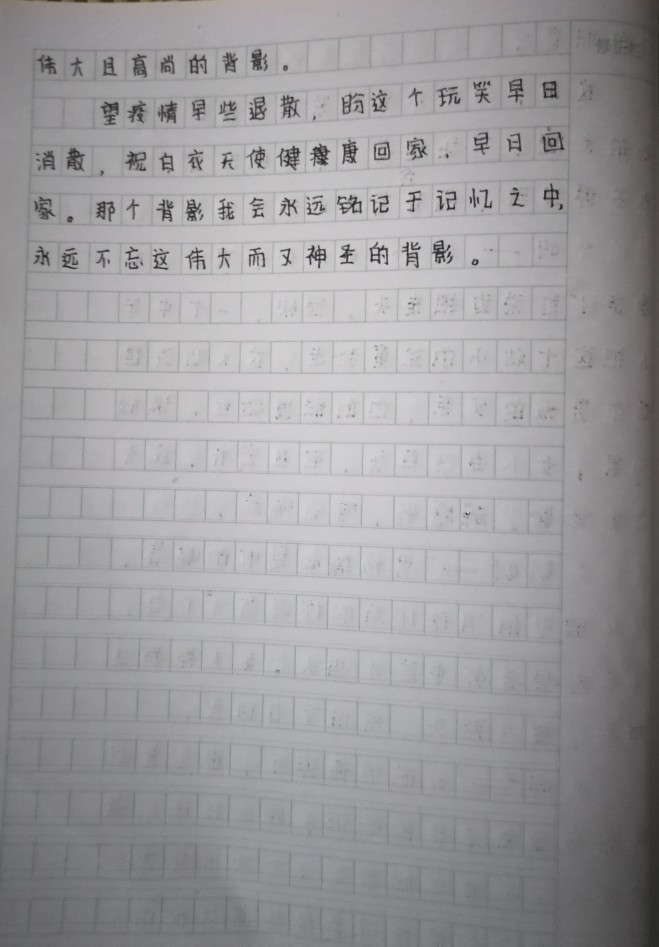 伟大且高尚的背影。
望疫情早些退散，盼这个玩笑早日
消散，祝白衣天使健康回家，早日回
家。那个背影我会永远铭记于记忆之中，
永远不忘这伟大而又神圣的背影。